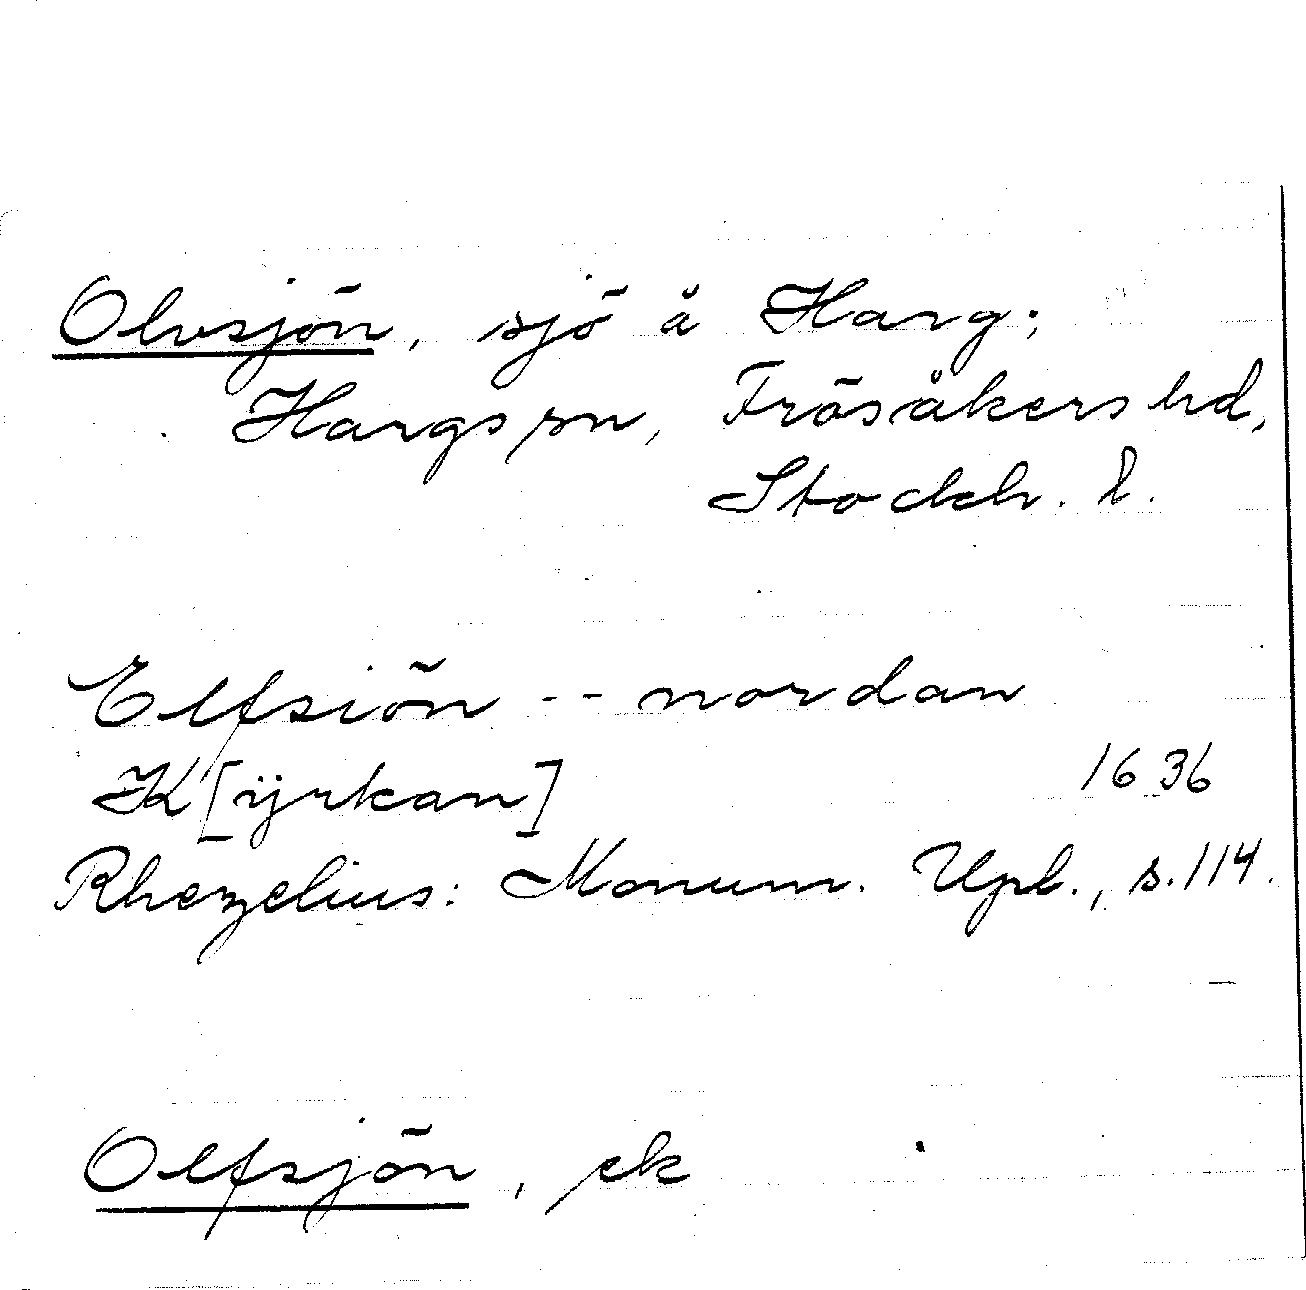 Olvsjön, sjö å Harg;
Hargs sn, Frösåkers hd,
Stockh. l.
Elfsiön -- nordan
K[ÿrkan] 1636
Rhezelius: Monum. Upl., s. 114.
Olfsjön, ek